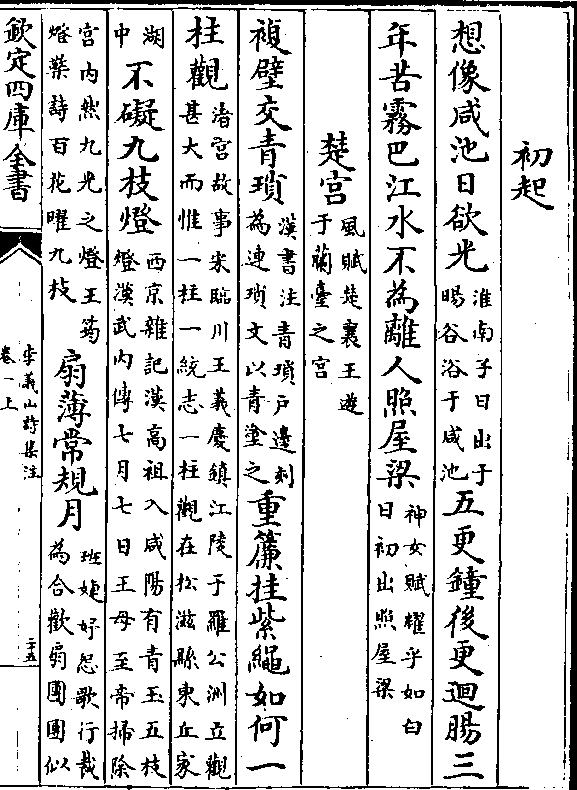 初起
想像咸池日欲光淮南子日出于暘谷浴于咸池五更鐘後更迴腸三
年苦霧巴江水不為離人照屋梁神女賦耀乎如白日初出照屋梁
楚宮風賦楚襄王遊于蘭臺之宮
複壁交青瑣漢書注青瑣戶邊刻為連瑣文以青塗之重簾挂紫繩如何一
柱觀渚宮故事宋臨川王義慶鎮江陵于羅公洲立觀甚大而惟一柱一統志一柱觀在松滋縣東丘家
湖中不礙九枝燈西京雜記漢高祖入咸陽有青玉五枝燈漢武內傳七月七日王母至帝掃除
宮內然九光之燈王筠燈檠詩百花曜九枝扇薄常規月班婕妤怨歌行裁為合歡扇團團似
欽定四庫全書
李義山詩集注
卷一上
二十五